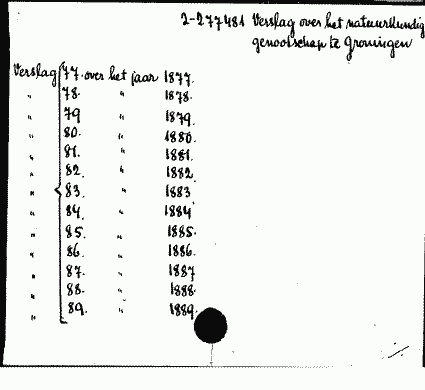 2-277481 Verslag over het natuurkundig
genootschap te Groningen
Verslag 77. over het jaar 1877.
" 78. " 1878.
" 79 " 1879.
" 80. " 1880.
" 81. " 1881.
" 82. " 1882
" 83. " 1883
" 84. " 1884
" 85. " 1885.
" 86. " 1886.
" 87. " 1887
" 88. " 1888.
" 89. " 1889.